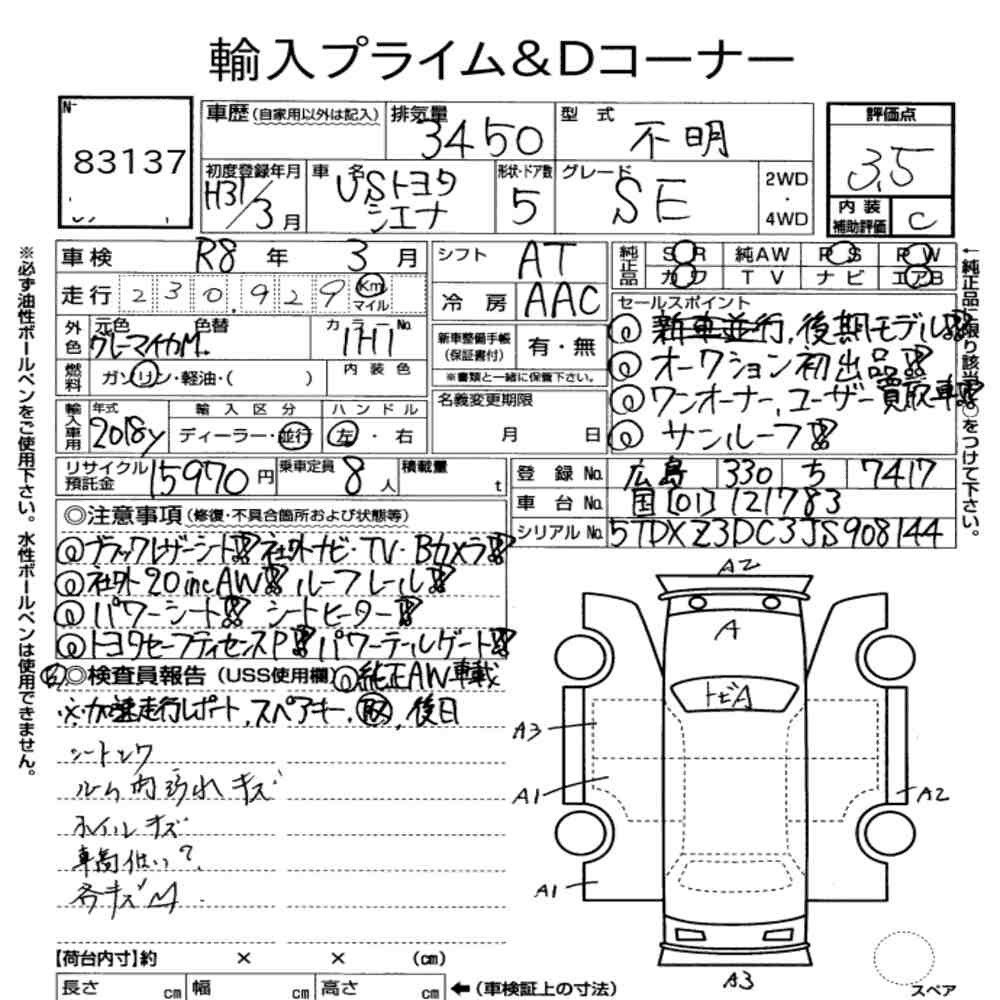 輸入プライム&Dコーナー
N-
83137
車歴(自家用以外は記入)
排気量 3450
型式 不明
評価点
3.5
初度登録年月 H31/3月
車名 USトヨタ シエナ
形状・ドア数 5
グレード SE
2WD
・
4WD
内装
補助評価 C
車検 R8年 3月
シフト AT
純正品
SR 純AW PS PW
カワ TV ナビ エアB
走行 230,929 Km マイル
冷房 AAC
セールスポイント
◎新車並行、後期モデル!!
◎オークション初出品!!
◎ワンオーナー、ユーザー買取車!!
◎サンルーフ!!
外色 元色 色替 グレーマイカM.
カラーNo. 1H1
新車整備手帳
(保証書付) 有・無
※書類と一緒に保管下さい。
燃料 ガソリン・軽油・( )
内装色
名義変更期限
月 日
輸入車用 年式 2018y
輸入区分 ディーラー・並行
ハンドル 左・右
リサイクル
預託金 15970円
乗車定員 8人
積載量 t
登録No. 広島 330 ち 7417
車台No. 国[01]121783
シリアルNo. 5TDXZ3DC3JS908144
◎注意事項(修復・不具合箇所および状態等)
◎ブラックレザーシート!!社外ナビ・TV・Bカメラ!!
◎社外20incAW!! ルーフレール!!
◎パワーシート!! シートヒーター!!
◎トヨタセーフティセンスP!!パワーテールゲート!!
◎検査員報告(USS使用欄)◎純正AW車載
※加速走行レポート、スペアキー、取、後日
シート
ルーム内汚れキズ
ホイルキズ
車高低い?
各キズ
A2
A
トビA
A3
A1
A2
A1
A3
スペア
【荷台内寸】約 × × (cm)
長さ cm 幅 cm 高さ cm ←(車検証上の寸法)
※必ず油性ボールペンをご使用下さい。水性ボールペンは使用できません。
←純正品に限り該当に○をつけて下さい。